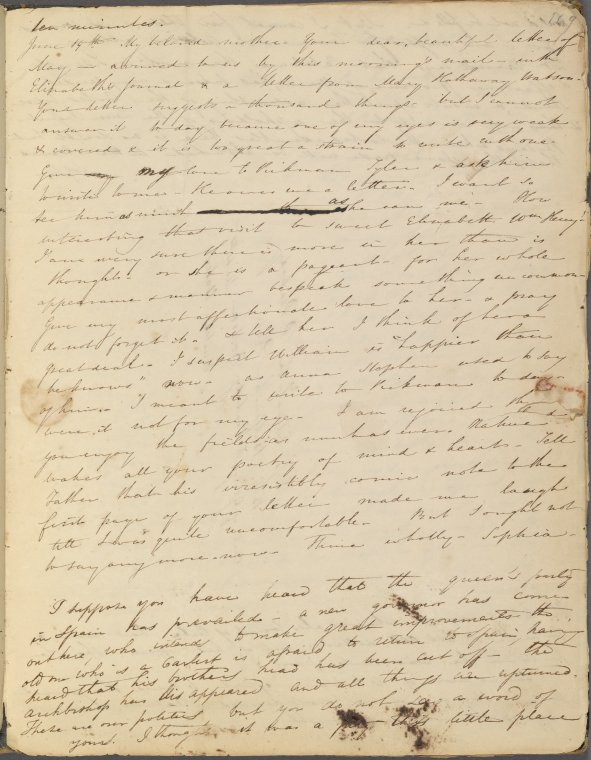 169
ten minutes.
June 19th My beloved mother Your dear, beautiful letter of
May — arrived to us by this morning's mail — with
Elizabeth's Journal & a letter from Mary Hathaway Watson.
Your letter suggests a thousand things but I cannot
answer it to day because one of my eyes is very weak
& covered & it is too great a strain to write with one.
Give my love to Pickman Tyler & ask him
to write to me. He owes me a letter. I want to
see him as much as he can me. How
interesting that visit to sweet Elizabeth Wm Henry!
I am very sure there is more in her than is
thought — or she is a pageant — for her whole
appearance & manner bespeak something uncommon.
Give my most affectionate love to her — & pray
do not forget it. & tell her I think of her a
great deal. I suspect William is "happier than
he knows" now — as Anna Stephen used to say
of him. I meant to write to Pickman to day
were it not for my eye. I am rejoiced that
you enjoy the fields as much as ever. Nature
wakes all your poetry of mind & heart. Tell
Father that his irresistibly comic note to the
first page of your letter made me laugh
till I was quite uncomfortable. But I ought not
to say any more now. Thine wholly — Sophia —
I suppose you have heard that the queen's party
in Spain has prevailed — a new governor has come
out here who intends to make great improvements the
old one who is a Carlist is afraid to return to Spain, having
heard that his brother's head has been cut off — the
archbishop has disappeared and all things are upturned.
These are our politics but you do not say a word of
yours. I thought it was a this little place